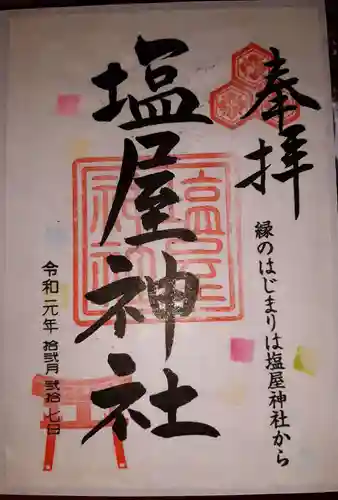 奉拝
縁のはじまりは塩屋神社から
塩屋神社
塩屋神社
令和元年 拾弐月 弐拾七日